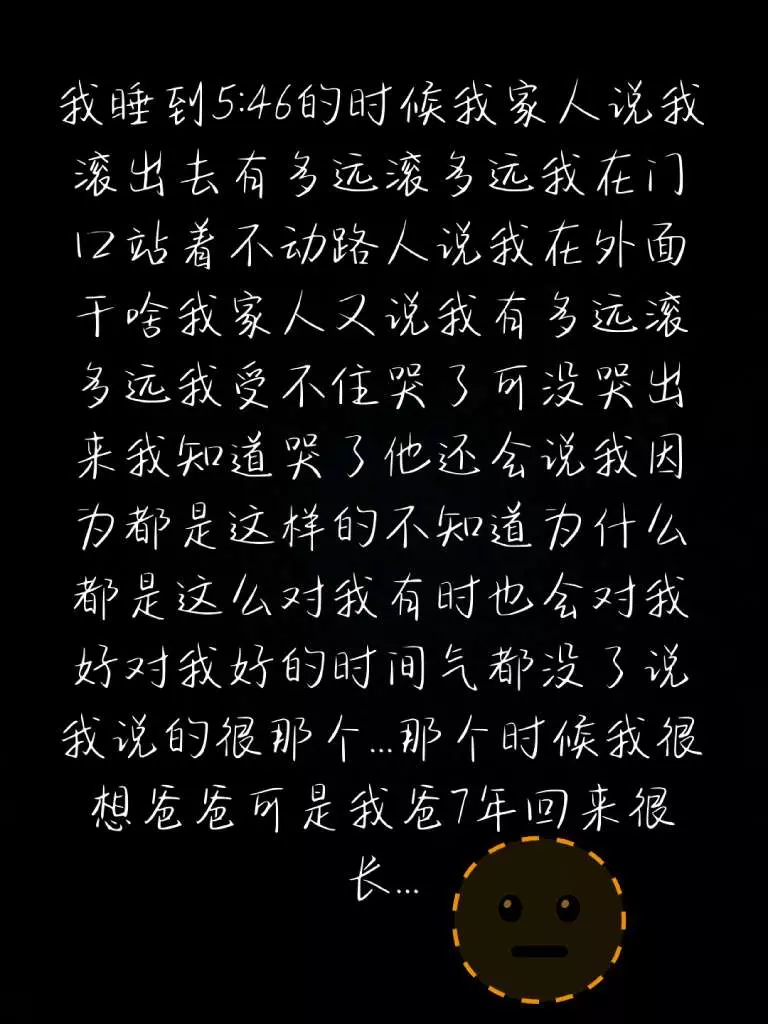 我睡到5:46的时候我家人说我
滚出去有多远滚多远我在门
口站着不动路人说我在外面
干啥我家人又说我有多远滚
多远我受不住哭了可没哭出
来我知道哭了他还会说我因
为都是这样的不知道为什么
都是这么对我有时也会对我
好对我好的时间气都没了说
我说的很那个...那个时候我很
想爸爸可是我爸7年回来很
长...